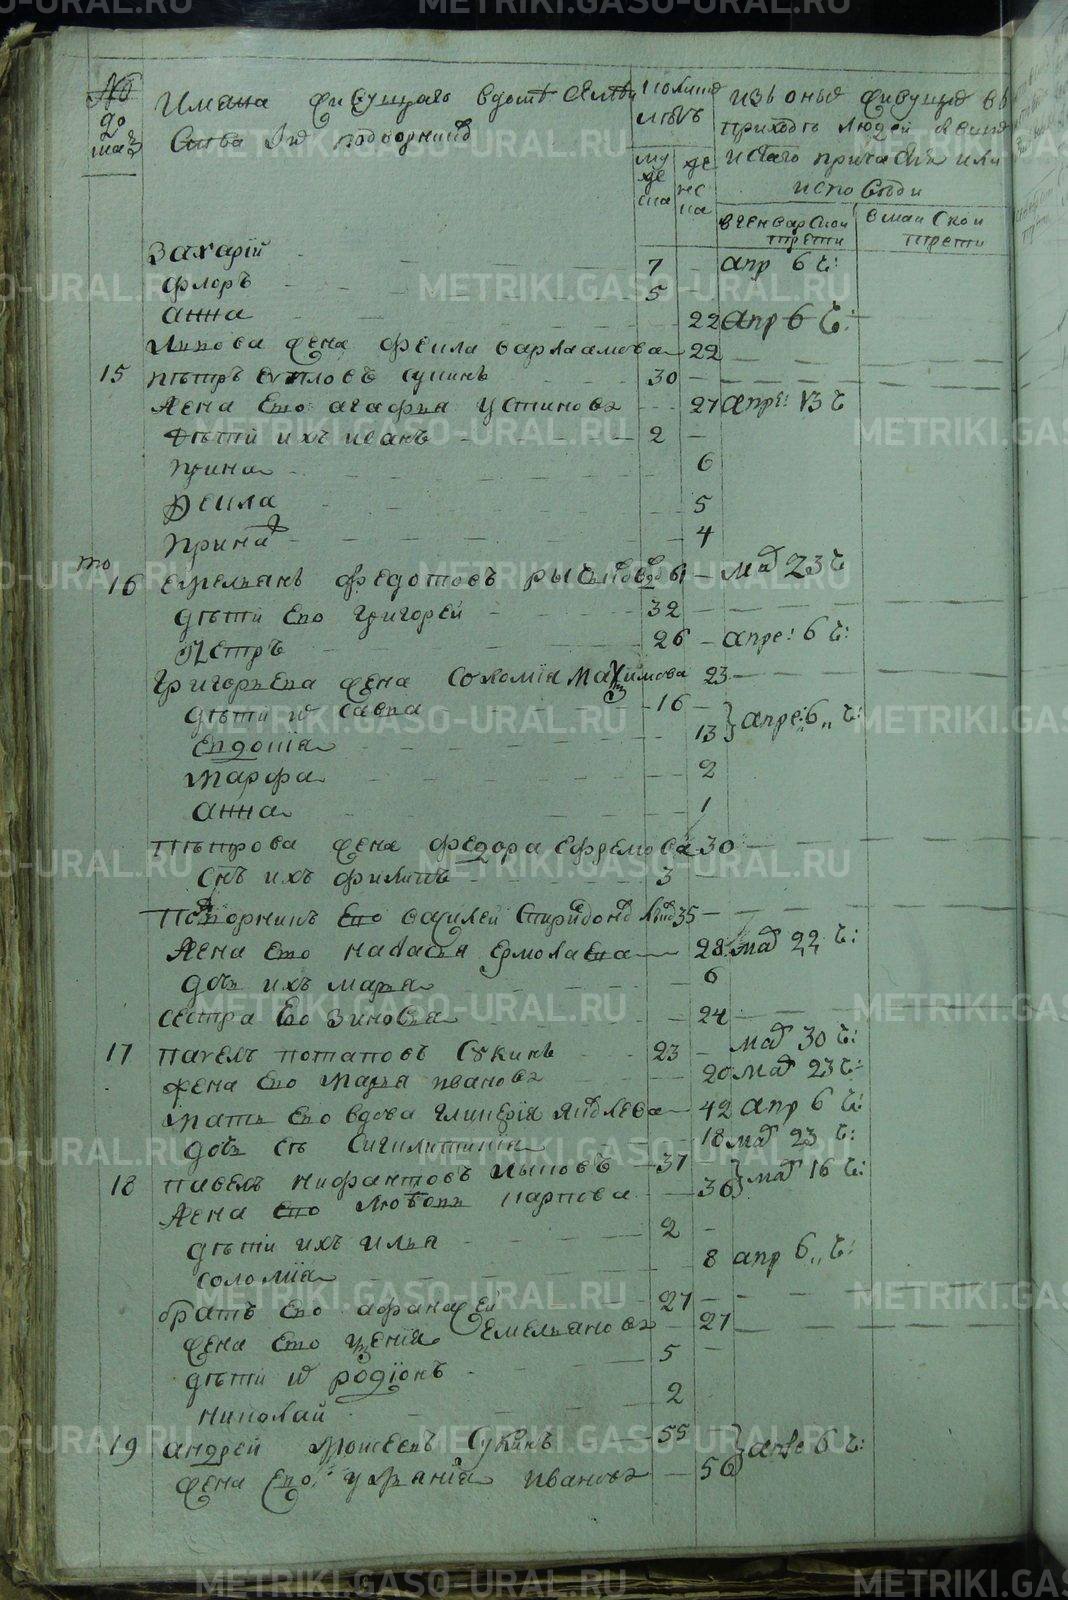 №
до
ма
Имена живущаго в доме
ства их подворниц
по коли
летъ
му
же
ска
же
нс
ка
изъ оных живущих въ
приходе людей
истаго причастия или
исповеди
в генварской
трети
в майской
трети
Захарій 7 апр 6 ч:
флоръ 5
анна 22 апр 6 ч:
жена феkла варлаамова 22
15 петръ сукинъ 30
Жена Его агафья Устинова 27 апре: 13 ч
дѣти ихъ иванъ 2
ирина 6
феkла 5
ирина 4
16 Емельянъ федотовъ 61 маія 23 ч
дѣти Его григорей 32
Петръ 26 апре: 6 ч:
григорьева жена соломія Маѯимова 23
дѣти ихъ савва 16 апре: 6 ч:
Евдокія 13
марфа 2
анна 1
петрова жена федора ефремова 30
снъ ихъ филипъ 3
подворникъ Его василей спиридонов 35
Жена Его настасья ермолаева 28 маія 22 ч:
дочь ихъ марья 6
сестра Его зиновья 24
17 павелъ потаповъ Сукинъ 23 маія 30 ч:
жена Его марья иванова 20 маія 23 ч:
мать Его вдова гликерія яковлева 42 апр 6 ч:
дочь Ея 18 маія 23 ч:
18 павелъ нифантовъ 37 маія 16 ч:
Жена Его любовь карпова 36
дѣти ихъ илья 2
соломія 8 апр 6 ч:
братъ Его афанасей 27
жена Его Емельянова 27
дѣти ихъ родіонъ 5
николай 2
19 андрей моисеевъ Сукинъ 55 апре 6 ч:
жена Его ульянія иванова 56
METRIKI.GASO-URAL.RU